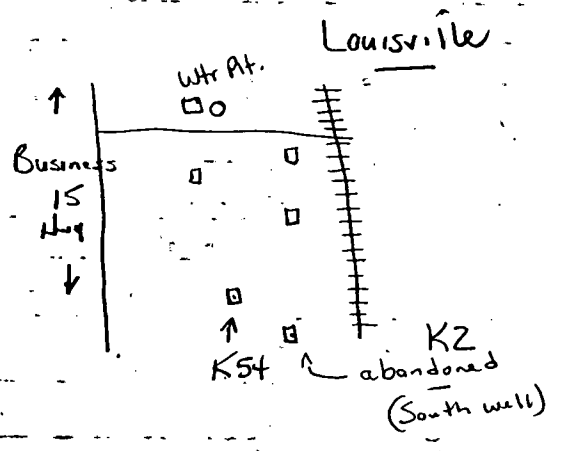 Louisville
Wtr Plt.
Business
15
Hwy
K54
K2
abandoned
(South well)